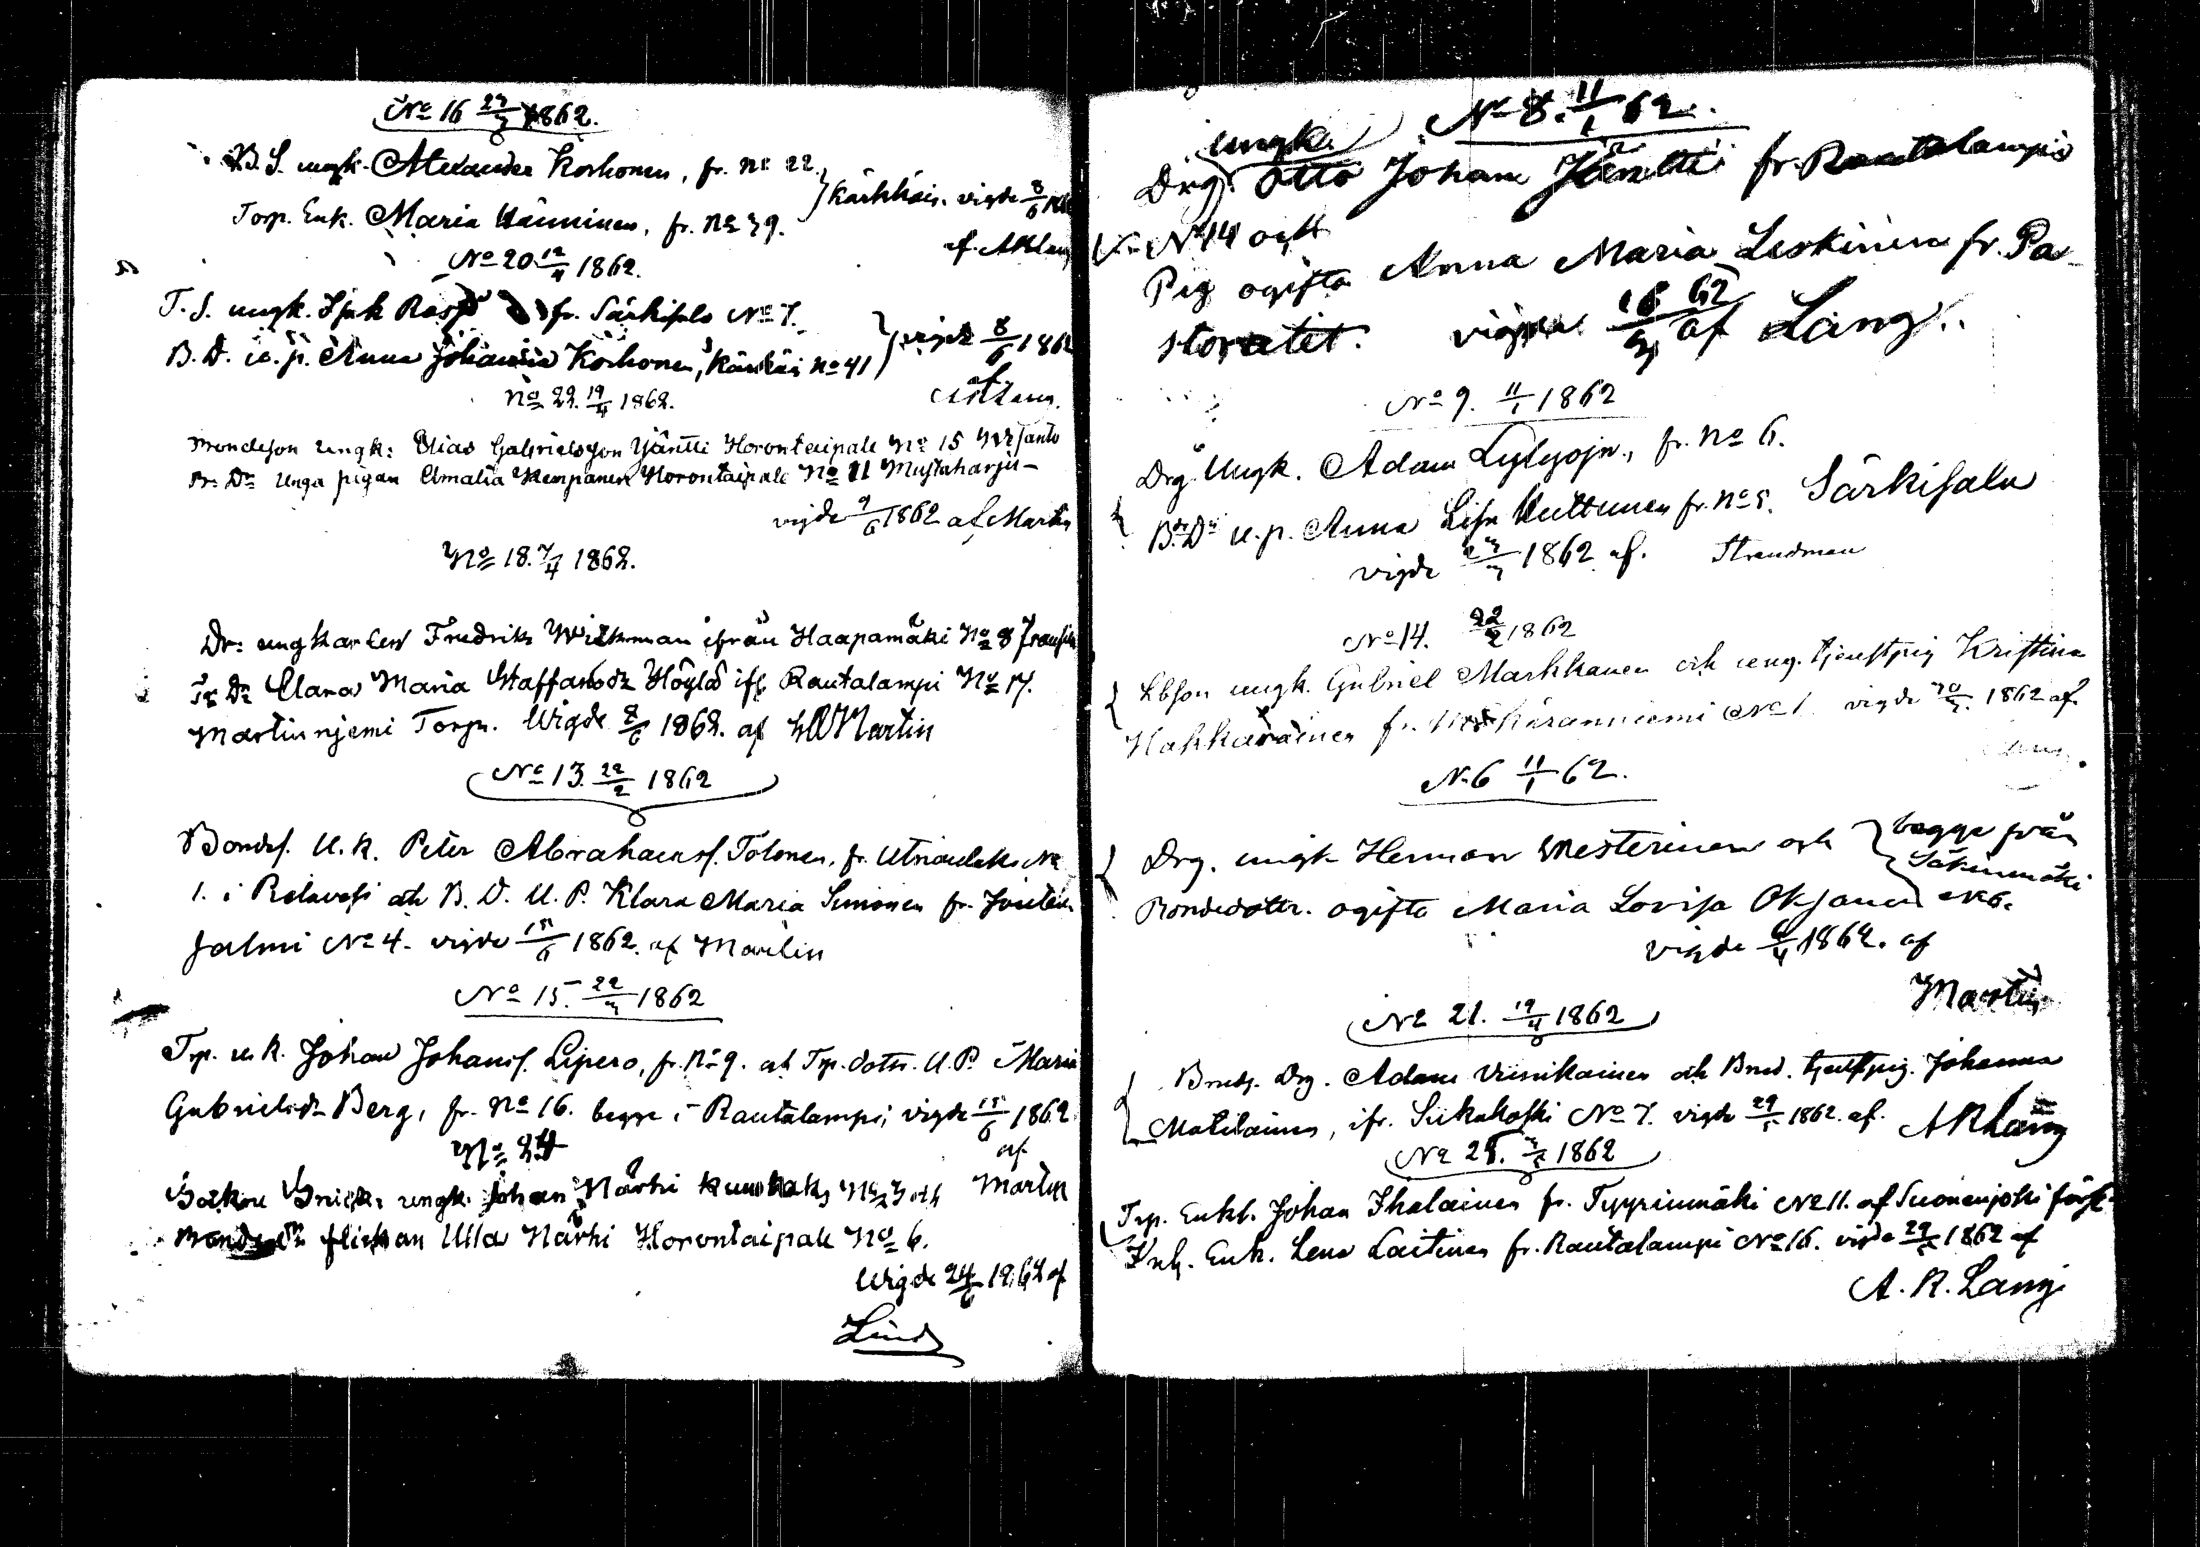 No 16 1862.
B.S. ungk. Alexander Korhonen, fr. No 22.
Torp. Enk. Maria Hänninen, fr. No 39.
Kärkkäis. vigde 8/6
af. ARLang
No 20. 12/4 1862.
T.S. ungk. fr. Särkisalo No 7.
B.D. u.p. Anna Johanna Korhonen, No 41
vigde 8/6 1862
af
No 22. 19/4 1862.
Bondeson Ungk: Elias Gabrielsson Jäntti Horontaipale No 15
Bo: Dr Unga pigan Amalia Kemppanen Horontaipale No 11 Mustaharju
vigde 9/6 1862 af Martin
No 18. 7/4 1862.
Dr: ungkarlen Fredrik ifrån Haapamäki No 8
Dr Clara Maria Staffansdr ifr. Rautalampi No 17.
Martinniemi Torpn. Wigde 8/6 1862. af Martin
No 13. 22/2 1862
Bondes. U.k. Peter Abrahams. Tolonen, fr.
1. i och B.D. U.P. Klara Maria Simonen fr.
salmi No 4. vigde 15/6 1862. af Martin
No 15. 22/3 1862
Trp. u.k. Johan Johans. Lipero, fr. No 9. och Trp. dottr. U.P. Maria
Gabrielsdr Berg, fr. No 16. begge i Rautalampi, vigde 15/6 1862
af
No 24
ungk. Johan Närhi No 3 och Martin
flickan Ulla Närhi Horontaipale No 6.
Wigde 24/6 1862 af
Lind
No 8. 11/1 62.
ungk.
Drg. Otto Johan Jäntti fr. Rautalampi
No 14 och
Pig ogifta Anna Maria Leskinen fr. Pa-
storatet. vigda 62 af Lang.
No 9. 11/1 1862
Drg. Ungk. Adam Lylyoja, fr. No 6.
B.Dr u.p. Anna Lisa Huttunen fr. No 5. Särkisalo
vigde 23/3 1862 af. Strandman
No 14. 22/2 1862
ungk. Gabriel Markkanen och ung. tjenstpig Kristina
Hakkarainen fr. No 1. vigde 1862 af
N. 6 11/1 62.
Drg. ungk Herman Westerinen och
Bondedottr. ogifta Maria Lovisa Oksanen
begge från
Säkinmäki
No 6.
vigde 6/4 1862. af
Martin
No 21. 19/4 1862
Drg. Adam Vinikainen och Bnd. tjenstpig. Johanna
Matilainen, ifr. Siikakoski No 7. vigde 29/5 1862. af. ARLang
No 25. 1862
Trp. Enkl. Johan Ihalainen fr. Tyyrinmäki No 11. af Suonenjoki förs.
Enk. Lena Laitinen fr. Rautalampi No 16. vigde 29/5 1862 af
A. R. Lang